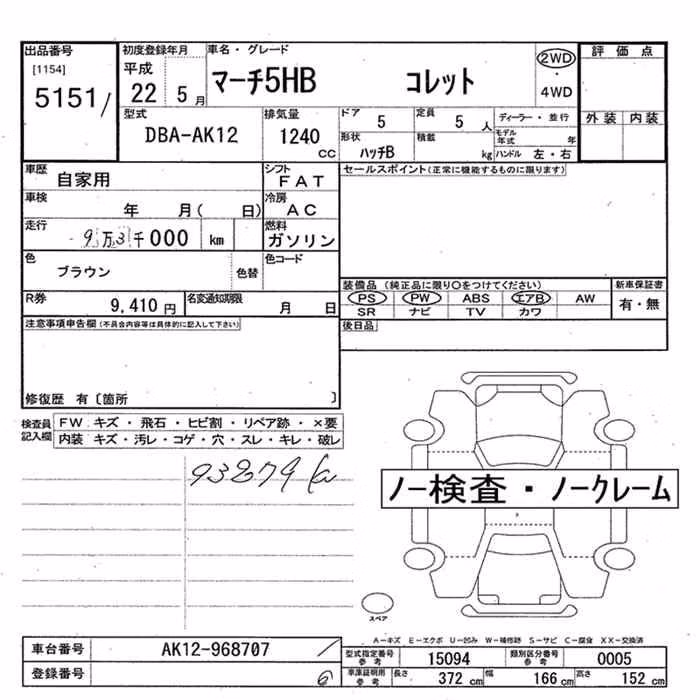 出品番号 初度登録年月 車名・グレード 評価点
[1154] 平成 2WD
5151/ 22 5月 マーチ5HB コレット ・
4WD
型式 排気量 ドア 定員 ディーラー・並行 外装 内装
DBA-AK12 1240 cc 5 5人 モデル年式 年
形状 積載 ハンドル 左・右
ハッチB kg
車歴 シフト セールスポイント(正常に機能するものに限ります)
自家用 FAT
車検 冷房
年 月( 日) AC
走行 燃料
9万3千000 km ガソリン
色 色コード
ブラウン 色替
装備品(純正品に限り○をつけてください) 新車保証書
R券 名変通知期限 PS PW ABS エアB AW 有・無
9,410円 月 日 SR ナビ TV カワ
注意事項申告欄(不具合内容等は具体的に記入して下さい) 後日品
修復歴 有〔箇所 〕
検査員 FW キズ・飛石・ヒビ割・リペア跡・×要
記入欄 内装 キズ・汚レ・コゲ・穴・スレ・キレ・破レ
93879 km
ノー検査・ノークレーム
スペア
A-キズ E-エクボ U-凹み W-補修跡 S-サビ C-腐食 XX-交換済
車台番号 AK12-968707 /
型式指定番号 参考 15094 類別区分番号 参考 0005
登録番号 6
車庫証明用 参考 長さ 372 cm 幅 166 cm 高さ 152 cm